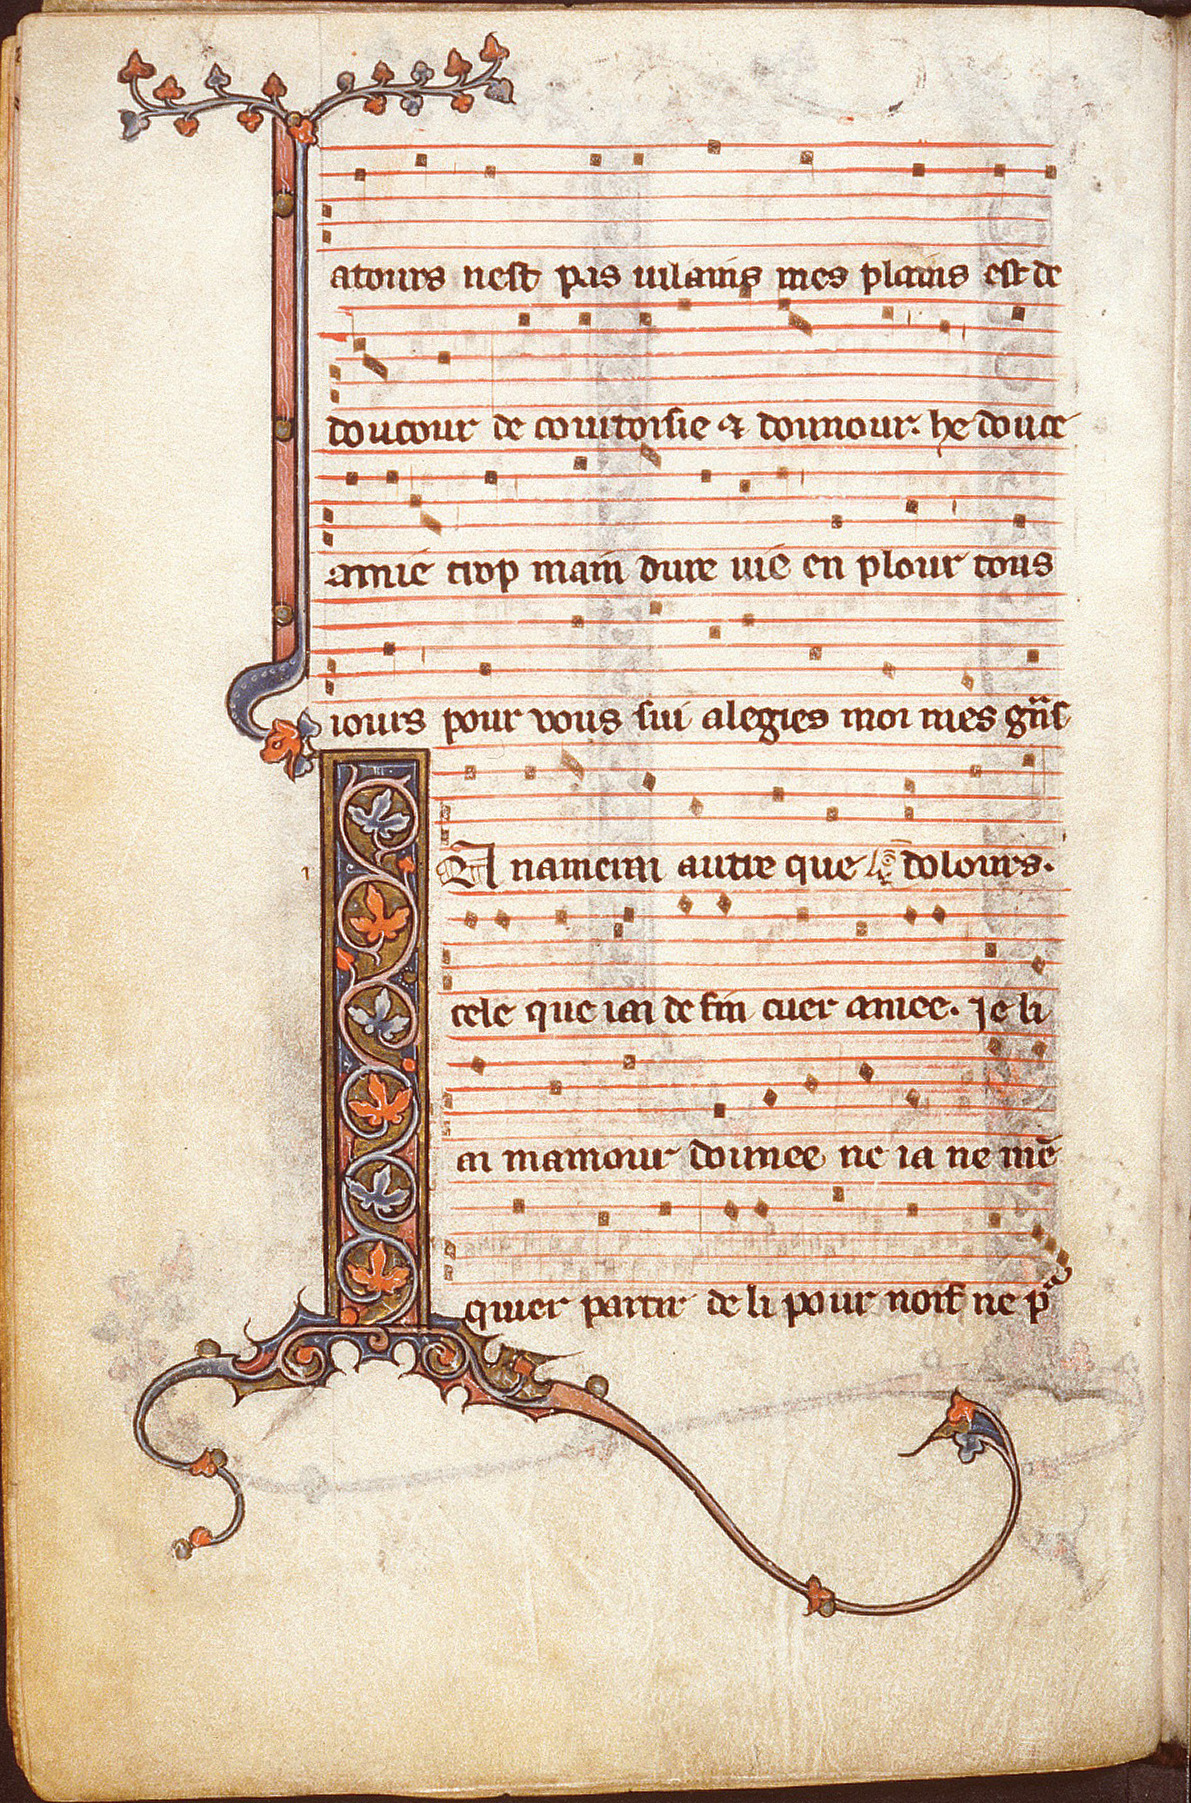 atours nest pas uilains mes plains est de
doucour de courtoisie ⁊ donnour. he douce
amie trop main dure uie en plour tous
iours pour vous sui alegies moi mes gñs
Ia namerai autre que dolours.
cele que iai de fin cuer amee. Je li
ai mamour donnee ne ia ne mē
quier partir de li pour noif ne pᵃ